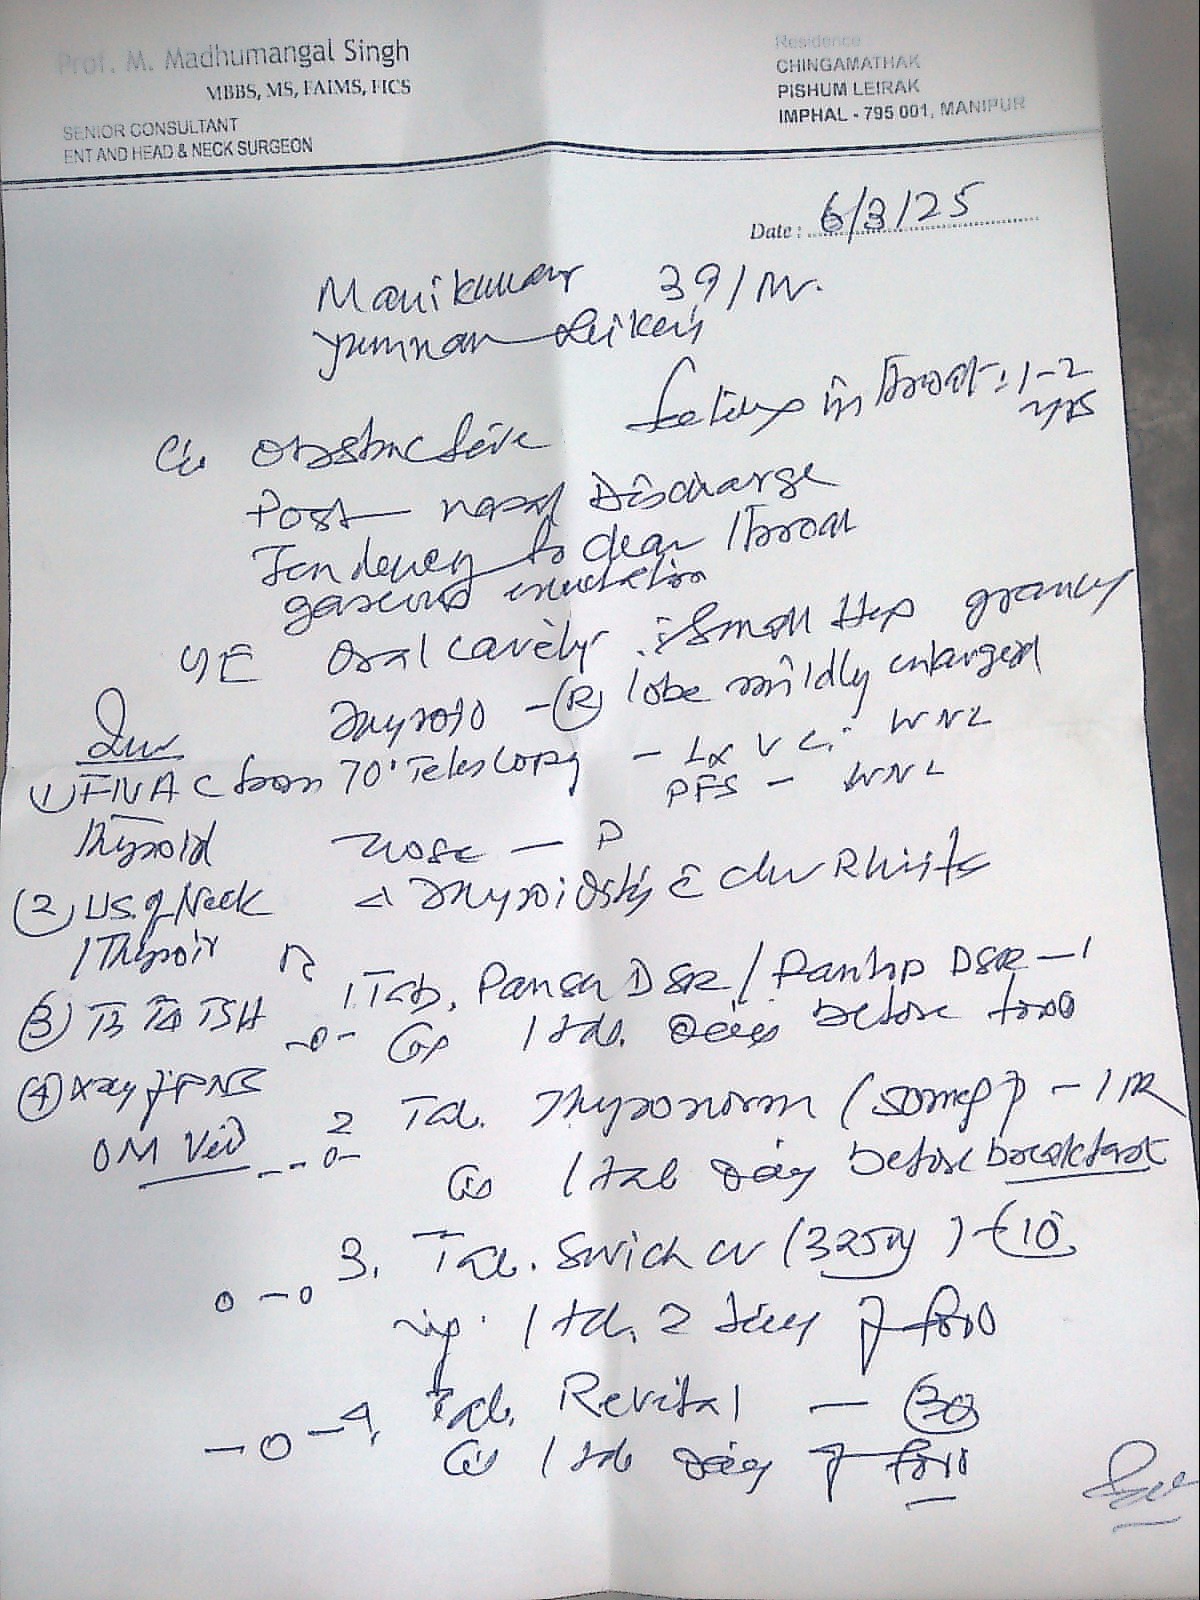 Prof. M. Madhumangal Singh
MBBS, MS, FAIMS, FICS
SENIOR CONSULTANT
ENT AND HEAD & NECK SURGEON
Residence
CHINGAMATHAK
PISHUM LEIRAK
IMPHAL - 795 001, MANIPUR
Date : 6/3/25
Manikumar 39/M.
Yumnam Leikai
C/o Obstructive feeling in throat : 1-2 yrs
Post nasal Discharge
Tendency to clear throat
gaseous eructation
O/E Oral cavity : Small granules
Thyroid - (R) lobe mildly enlarged
70° Telescopy - Lx V C : WNL
PFS - WNL
Nose - P
Δ Thyroiditis c̄ Rhinitis
Inv
1) FNAC from
Thyroid
(2) US of Neck
/ Thyroid
(3) T3 T4 TSH
(4) X-ray of PNS
OM View
R
1 Tab. DSR / DSR - 1
-o- 1 tab. daily before food
2 Tab. Thyronorm (50mcg) - 1
-o- 1 tab daily before breakfast
3. Tab. CV (325mg) - (10)
o - o 1 tab. 2 times food
4. Tab. Revital - (30)
- o - 1 tab daily food